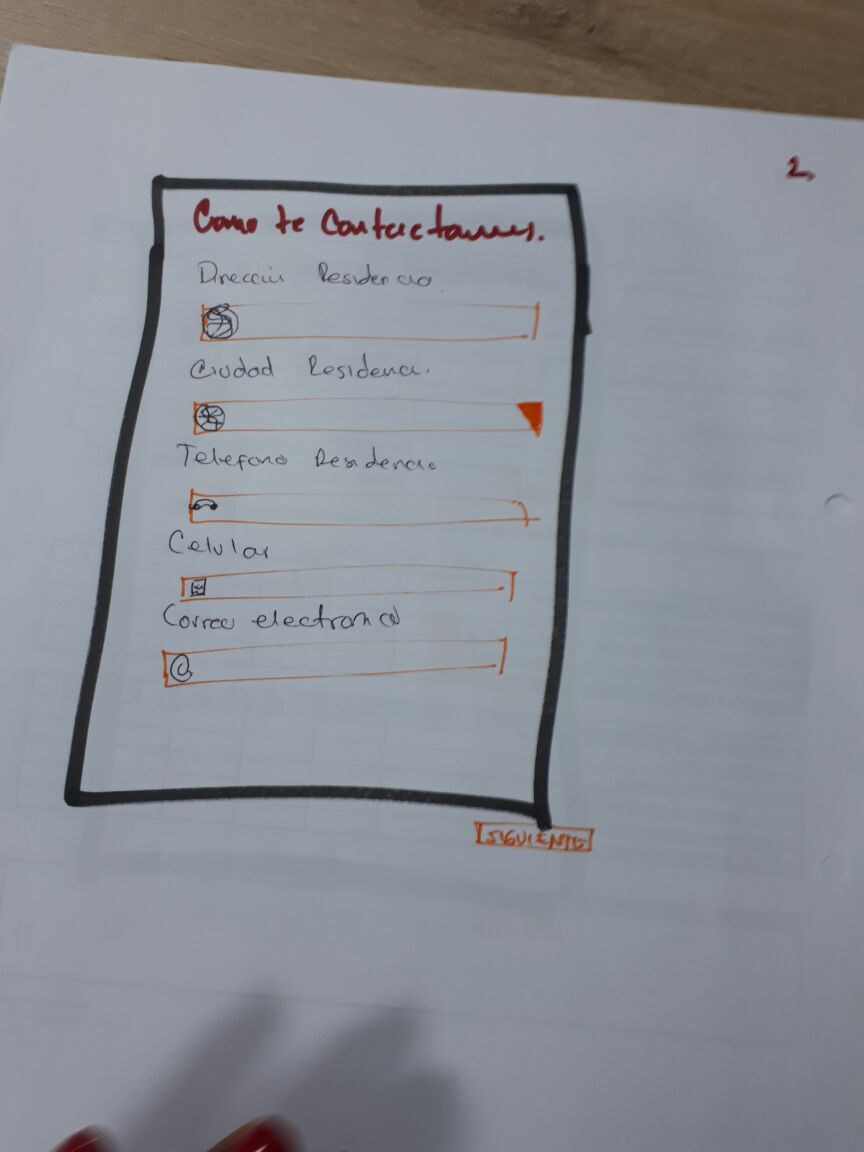 2.
Como te Contactamos.
Dirección Residencia
Ciudad Residencia.
Telefono Residencia
Celular
Correo electronico
@
SIGUIENTE